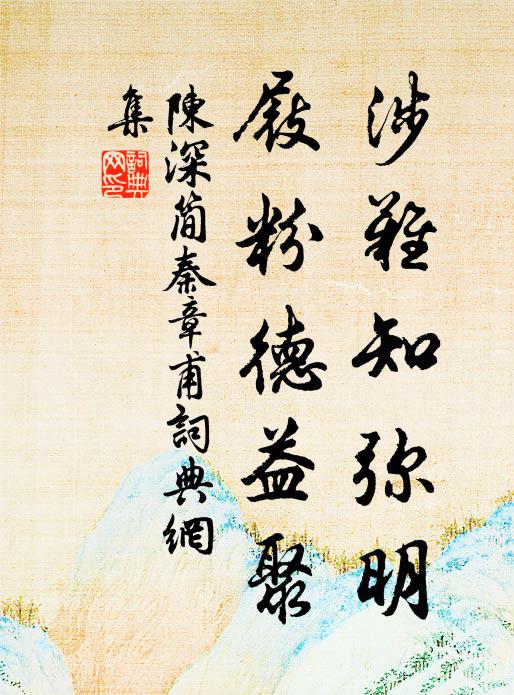 涉難知弥明
粉德益聚
陳深简秦章甫詞典網
集
詞典
网印